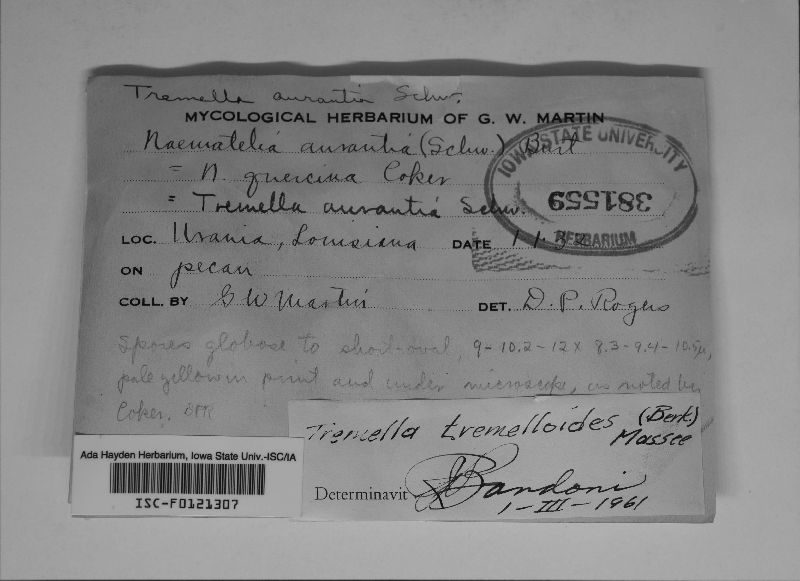 Tremella aurantia Schw.
MYCOLOGICAL HERBARIUM OF G. W. MARTIN
Naematelia aurantia (Schw.) Burt
= N. quercina Coker
= Tremella aurantia Schw.
IOWA STATE UNIVERSITY
381559
HERBARIUM
LOC. Urania, Louisiana DATE 1.1.32
ON pecan
COLL. BY G W Martin DET. D. P. Rogers
Spores globose to short-oval, 9-10.2-12 x 8.3-9.4-10.5µ,
pale yellow in print and under microscope, as noted by
Coker. DPR
Tremella tremelloides (Berk.)
Massee
Determinavit Bandoni
1-III-1961
Ada Hayden Herbarium, Iowa State Univ.-ISC/IA
ISC-F0121307